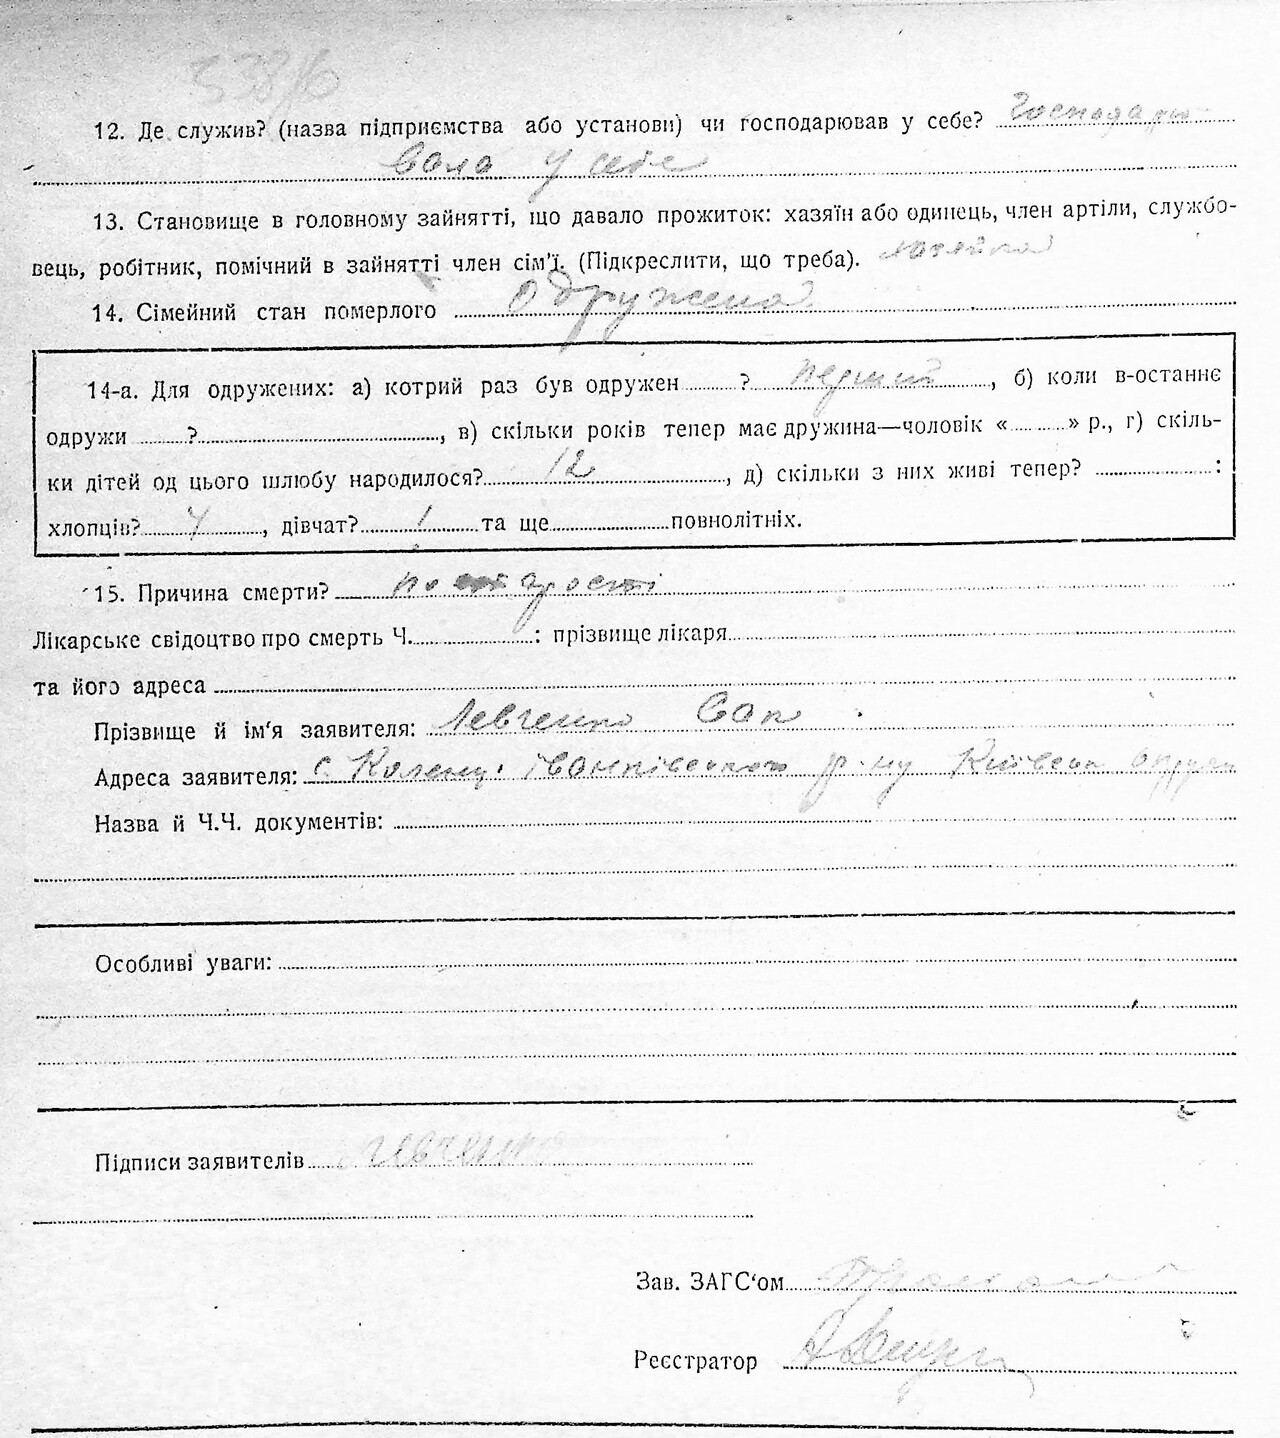 538/6
12. Де служив? (назва підприємства або установи) чи господарював у себе? Господарю
вала у себе
13. Становище в головному зайнятті, що давало прожиток: хазяїн або одинець, член артіли, службо-
вець, робітник, помічний в зайнятті член сім'ї. (Підкреслити, що треба). хазяйка
14. Сімейний стан померлого одружена
14-а. Для одружених: а) котрий раз був одружен ? перший, б) коли в-останнє
одружи ?, в) скільки років тепер має дружина—чоловік « » р., г) скіль-
ки дітей од цього шлюбу народилося? 12, д) скільки з них живі тепер? :
хлопців? 4, дівчат? 1 та ще повнолітніх.
15. Причина смерти? по старості
Лікарське свідоцтво про смерть Ч. : прізвище лікаря
та його адреса
Прізвище й ім'я заявителя: Левченко Сак
Адреса заявителя: с. Коленці іванківського р-ну Київськ округи
Назва й Ч.Ч. документів:
Особливі уваги:
Підписи заявителів Левченко
Зав. ЗАГС'ом
Реєстратор